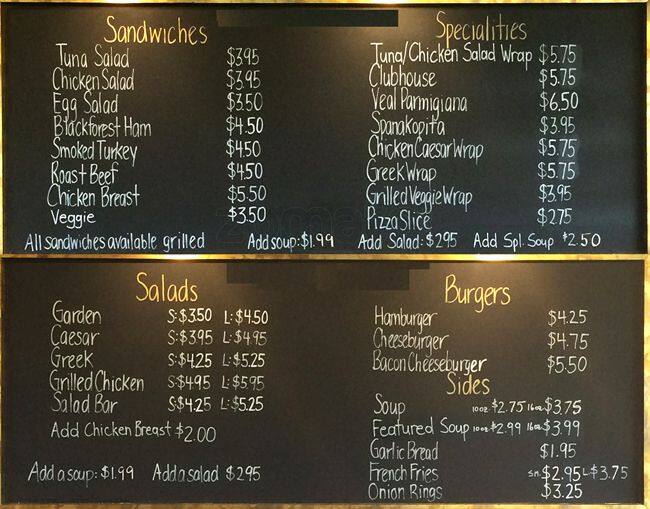 Sandwiches
Tuna Salad $3.95
Chicken Salad $3.95
Egg Salad $3.50
Blackforest Ham $4.50
Smoked Turkey $4.50
Roast Beef $4.50
Chicken Breast $5.50
Veggie $3.50
All sandwiches available grilled Add soup: $1.99
Specialities
Tuna/Chicken Salad Wrap $5.75
Clubhouse $5.75
Veal Parmigiana $6.50
Spanakopita $3.95
Chicken Caesar Wrap $5.75
Greek Wrap $5.75
Grilled Veggie Wrap $3.95
Pizza Slice $2.75
Add Salad: $2.95 Add Spl. Soup $2.50
Salads
Garden S: $3.50 L: $4.50
Caesar S: $3.95 L: $4.95
Greek S: $4.25 L: $5.25
Grilled Chicken S: $4.95 L: $5.95
Salad Bar S: $4.25 L: $5.25
Add Chicken Breast $2.00
Add a soup: $1.99 Add a salad $2.95
Burgers
Hamburger $4.25
Cheeseburger $4.75
Bacon Cheeseburger $5.50
Sides
Soup 10oz $2.75 16oz $3.75
Featured Soup 10oz $2.99 16oz $3.99
Garlic Bread $1.95
French Fries SM. $2.95 L $3.75
Onion Rings $3.25